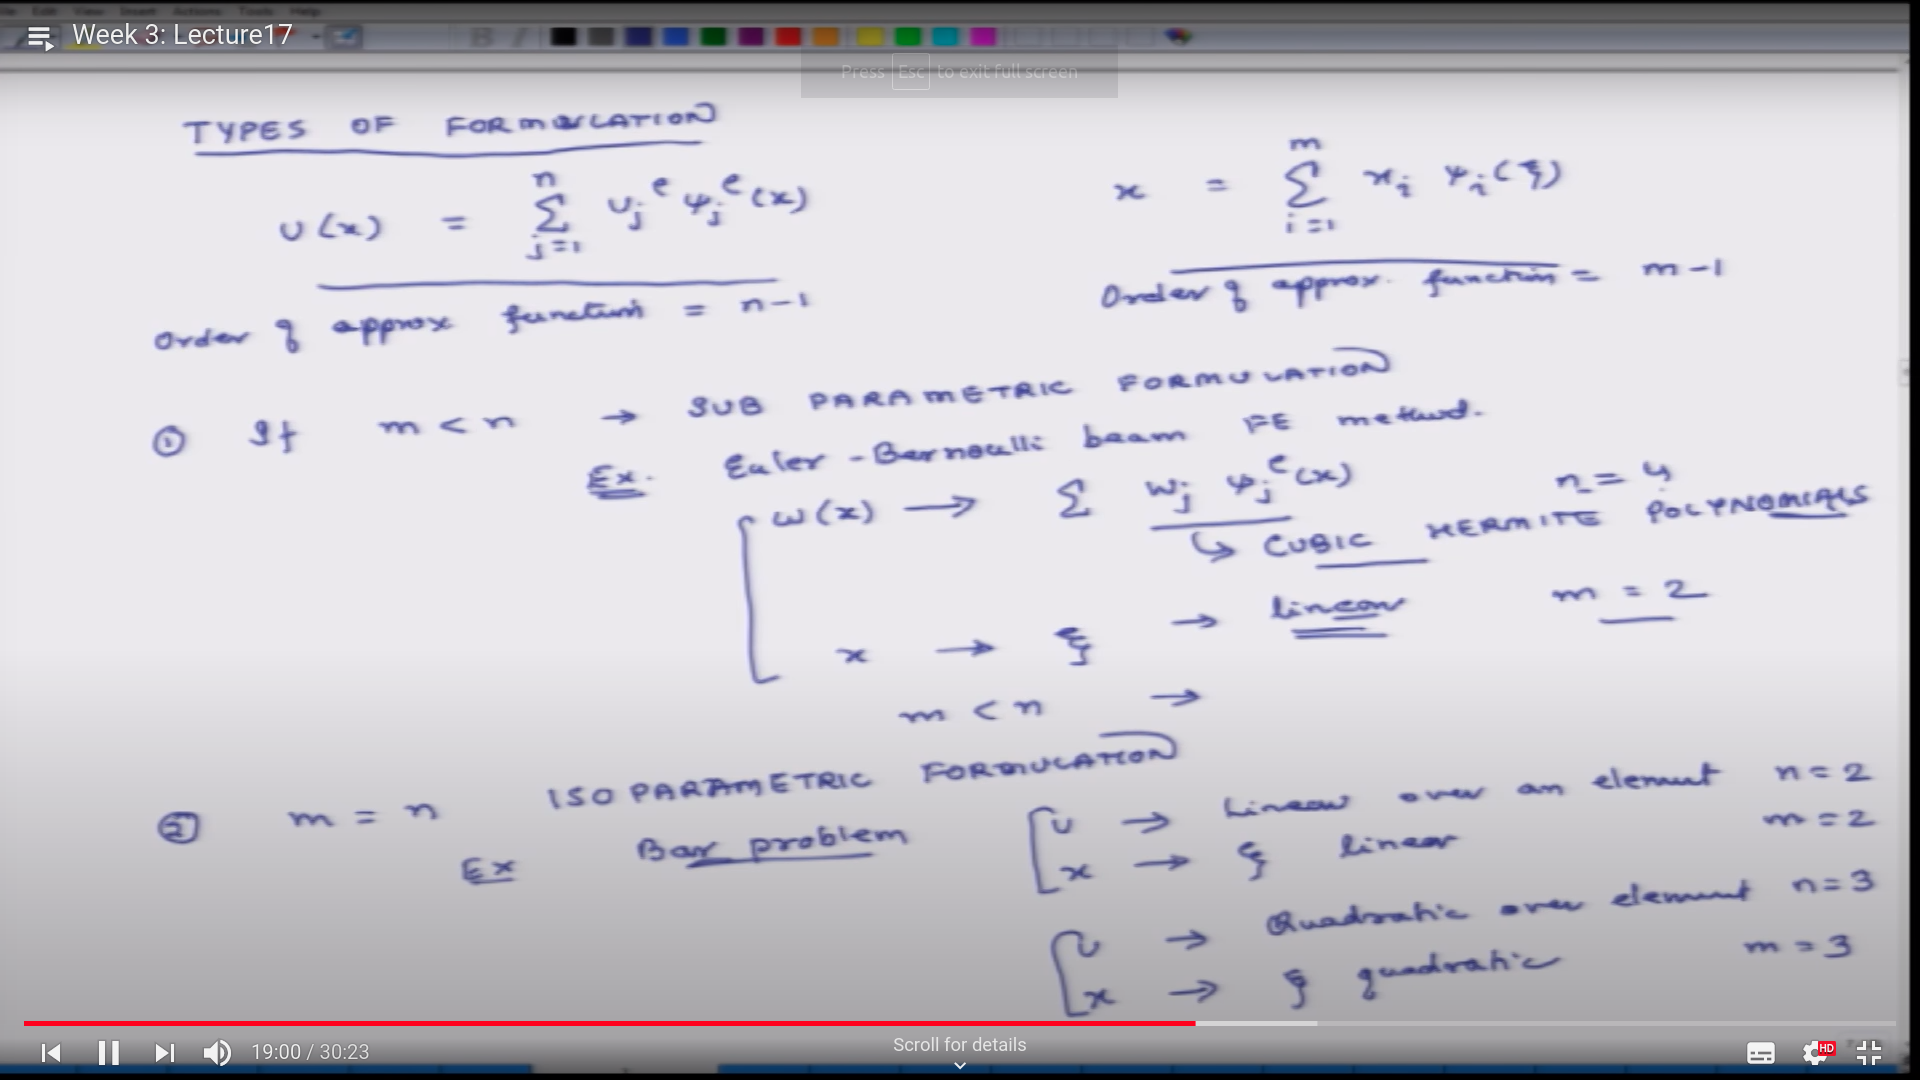 Week 3: Lecture17
Press Esc to exit full screen
TYPES OF FORMULATION
u(x) = Σ_{j=1}^{n} u_j^e ψ_j^e(x)
x = Σ_{i=1}^{m} x_i ψ_i(ξ)
Order of approx function = n-1
Order of approx. function = m-1
① If m < n → SUB PARAMETRIC FORMULATION
Ex. Euler-Bernoulli beam FE method.
w(x) → Σ w_j ψ_j^e(x) n = 4
↳ CUBIC HERMITE POLYNOMIALS
x → ξ → linear m = 2
m < n →
② m = n ISOPARAMETRIC FORMULATION
Ex Bar problem
u → Linear over an element n = 2
x → ξ linear m = 2
u → Quadratic over element n = 3
x → ξ quadratic m = 3
19:00 / 30:23
Scroll for details
HD